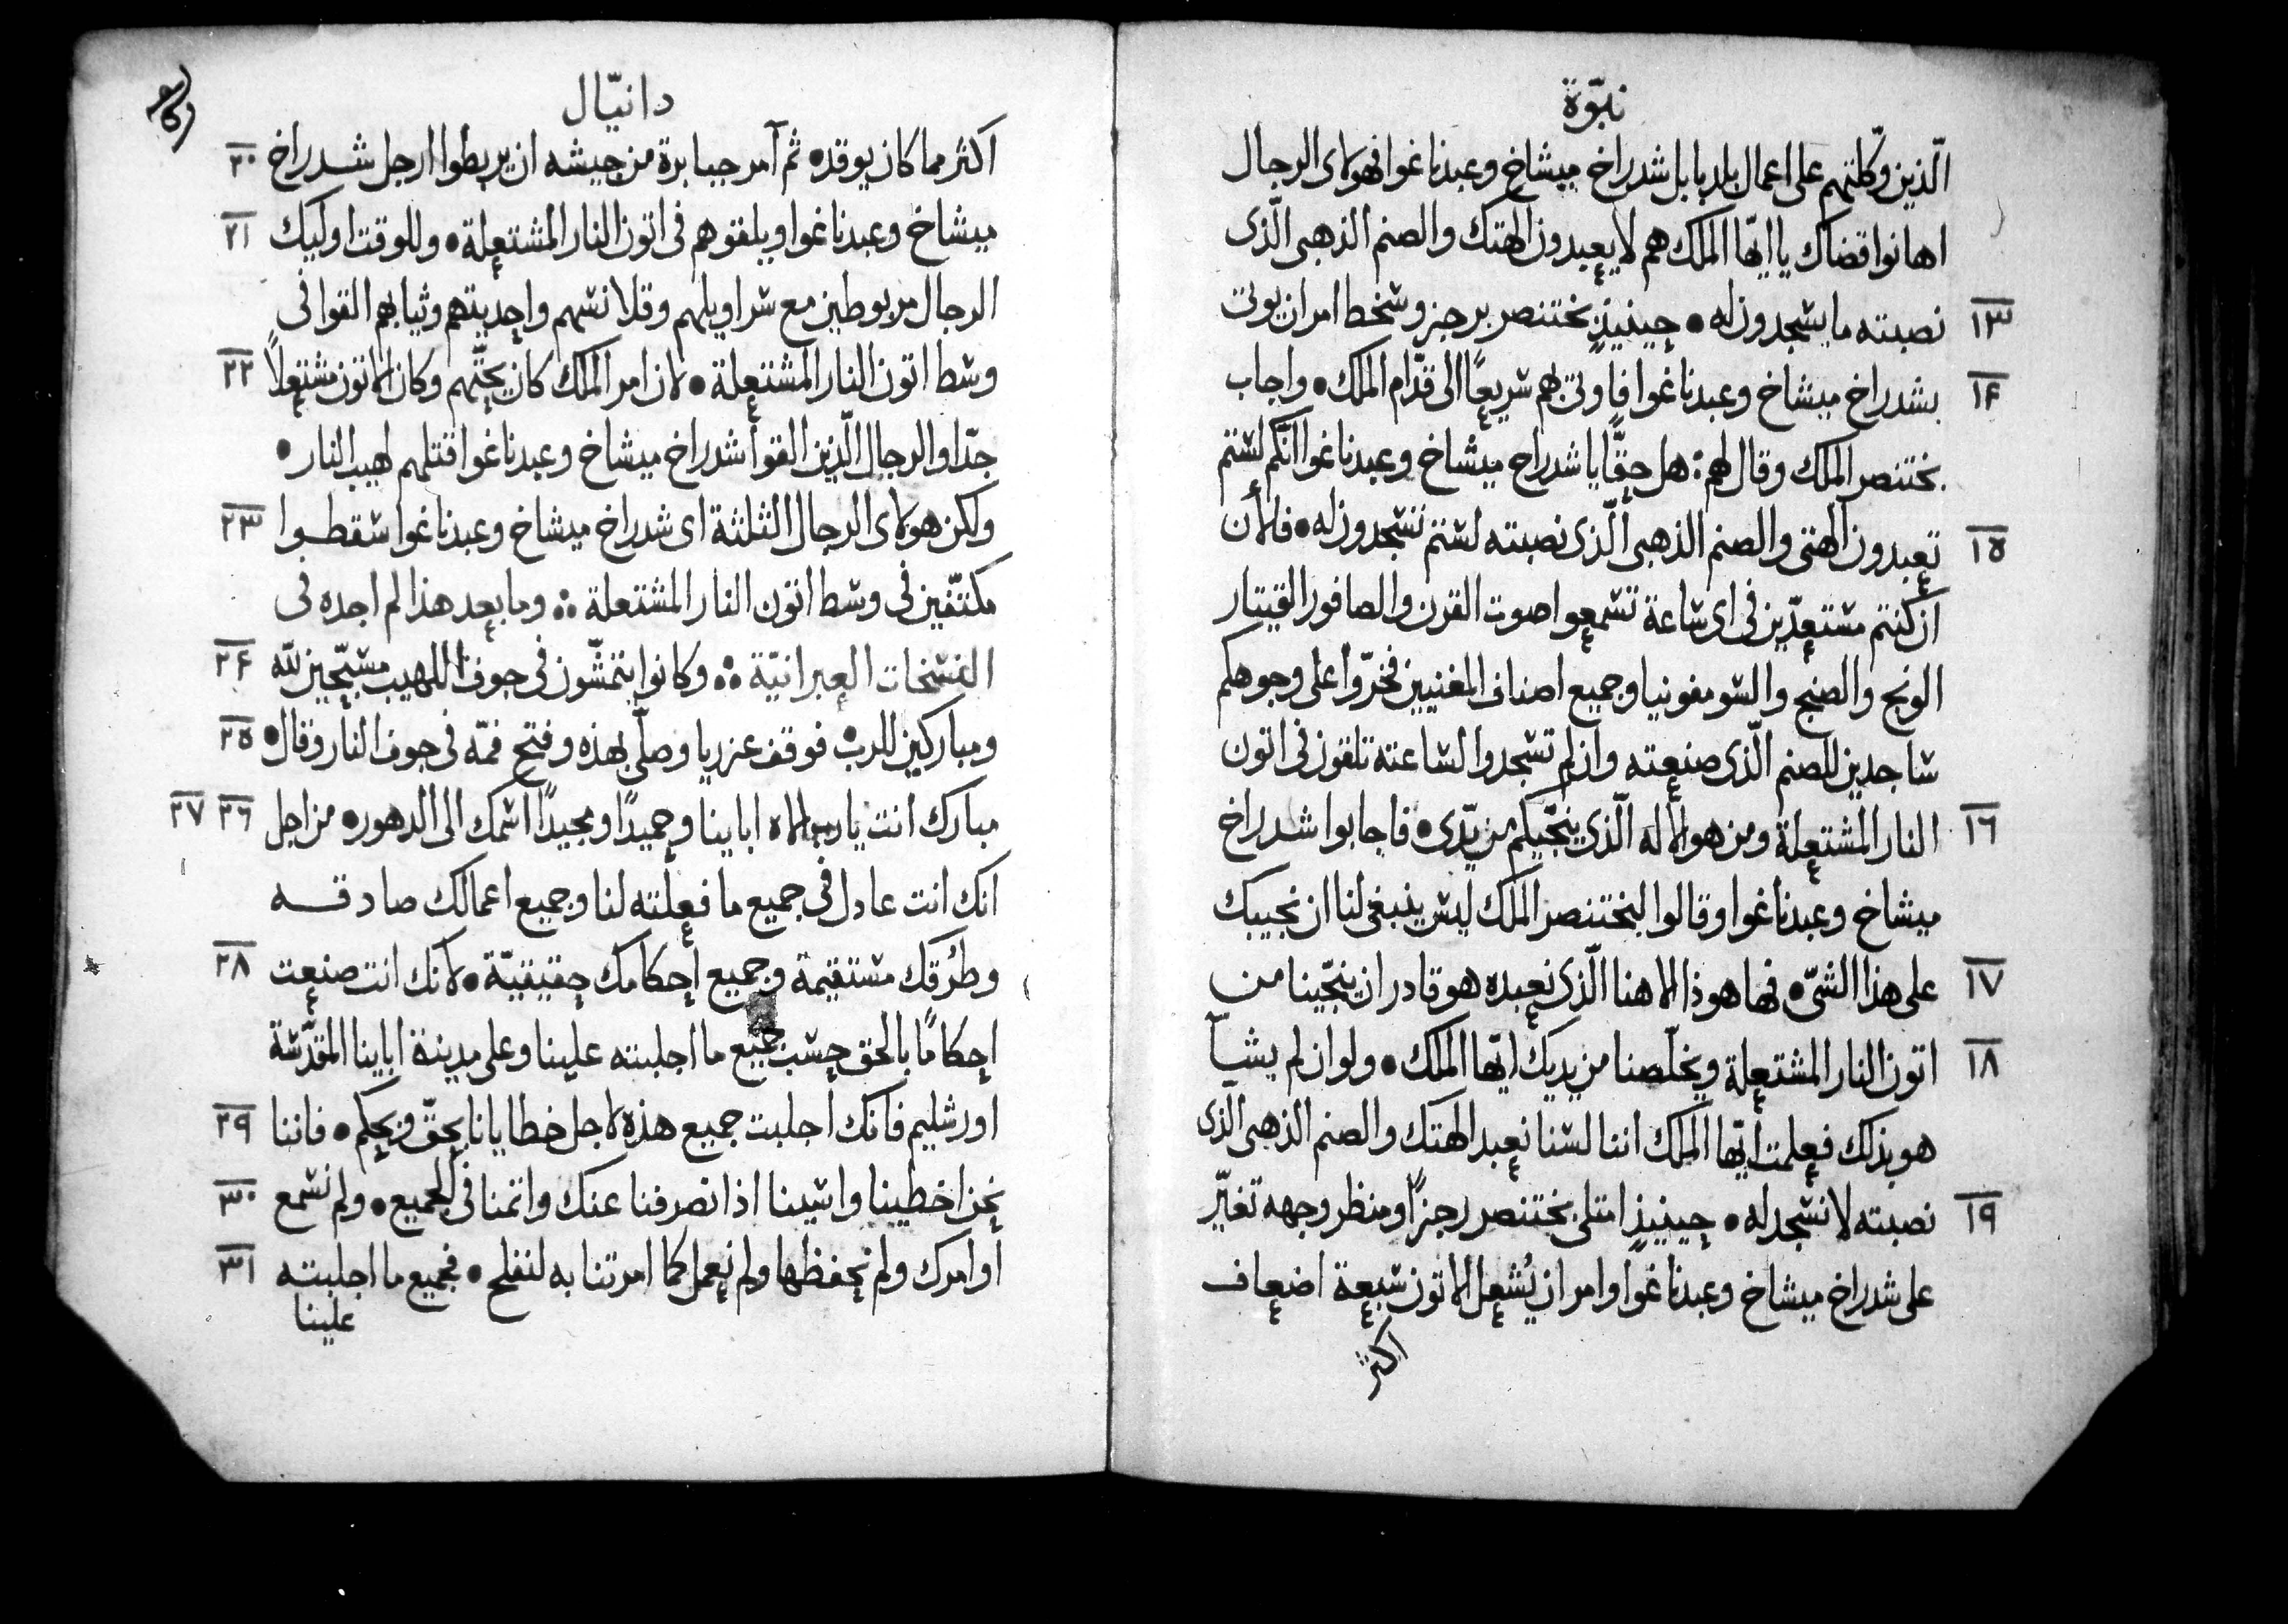 نبوّة
الّذين وكّلتهم على اعمال بلد بابل شدراخ ميشاخ وعبدناغوا فهولاى الرجال
اهانوا قضاك يا ايّها الملك هم لا يعبدون الهتك والصنم الذهبى الّذى
١٣ نصبته ما يسجدون له • حينيذٍ بختنصر برجز وسخط امر ان يوتى
١٤ بشدراخ ميشاخ وعبدناغوا فاوتى بهم سريعًا الى قدّام الملك • واجاب
بختنصر الملك وقال لهم : هل حقًّا يا شدراخ ميشاخ وعبدناغوا انّكم لستم
١٥ تعبدون الهتى والصنم الذهبى الّذى نصبته لستم تسجدون له • فلأن
ان كنتم مستعدّين فى اى ساعة تسمعوا صوت القرن والصافور القيتار
الونج والصنج والسومفونيا وجميع اصناف المغنيين فخرّوا على وجوهكم
ساجدين للصنم الّذى صنعته وان لم تسجدوا لساعته تلقون فى اتون
١٦ النار المشتعلة ومن هو الاله الّذى ينجّيكم من يدّى • فاجابوا شدراخ
ميشاخ وعبدناغوا وقالوا لبختنصر الملك ليس ينبغى لنا ان نجيبك
١٧ على هذا الشىّ • فها هوذا الاهنا الّذى نعبده هو قادر ان ينجّينا من
١٨ اتون النار المشتعلة ويخلّصنا من يديك ايّها الملك • ولو ان لم يشآ
هو بذلك فعلمت ايّها الملك اننا لسنا نعبد الهتك والصنم الذهبى الّذى
١٩ نصبته لا نسجد له • حينيذٍ امتلى بختنصر رجزًا ومنظر وجهه تغيّر
على شدراخ ميشاخ وعبدناغوا وامر ان يُشعل الاتون سبعة اضعاف
اكثر
دانيّال
اكثر مما كان يوقده • ثم أمر جبابرة من جيشه ان يربطوا ارجل شدراخ ٢٠
ميشاخ وعبدناغوا ويلقوهم فى اتون النار المشتعلة • وللوقت اوليك ٢١
الرجال مربوطين مع سراويلهم وقلانسهم واحذيتهم وثيابهم القوا فى
وسط اتون النار المشتعلة • لان امر الملك كان يحثّهم وكان الاتون مشتعلاً ٢٢
جدّا والرجال الّذين القوا شدراخ ميشاخ وعبدناغوا قتلهم لهيب النار •
ولكن هولاى الرجال الثلثة اى شدراخ ميشاخ وعبدناغوا سقطوا ٢٣
مكتّفين فى وسط اتون النار المشتعلة ؞ وما بعد هذا لم اجده فى
النسخات العبرانيّة ؞ وكانوا يتمشّون فى جوف اللهيب مسبّحين للّه ٢٤
ومباركين للرب • فوقف عزريا وصلّى بهذه وفتح فمّه فى جوف النار وقال • ٢٥
مبارك انت يا رب الاه اباينا وحميدًا ومجيدًا اسمك الى الدهور • من اجل ٢٦ ٢٧
انك انت عادل فى جميع ما فعلته لنا وجميع اعمالك صادقه
وطُرقك مستقيمة وجميع احكامك حقيقيّة • لانك انت صنعت ٢٨
احكامًا بالحق حسب جميع ما اجلبته علينا وعلى مدينة اباينا المقدّسة
اورشليم فانك اجلبت جميع هذه لاجل خطايانا بحقّ وبحكم • فاننا ٢٩
نحن اخطينا واسينا اذ انصرفنا عنك واثمنا فى الجميع • ولم نسمع ٣٠
اوامرك ولم نحفظها ولم نعمل كما امرتنا به لنفلح • فجميع ما اجلبته ٣١
علينا